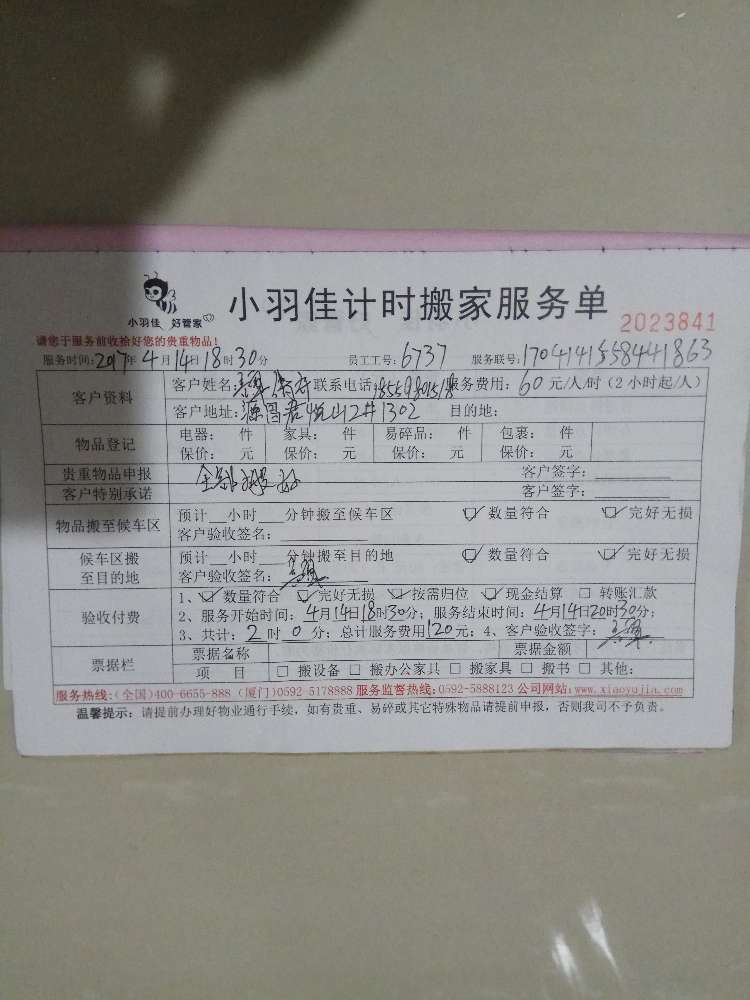 小羽佳 好管家
小羽佳计时搬家服务单
2023841
请您于服务前收拾好您的贵重物品！
服务时间：2017年4月14日18时30分 员工工号：6737 服务联号：17041415558441863
客户资料
客户姓名： 联系电话 服务费用：60元/人/时（2小时起/人）
客户地址：源昌君悦山2#1302 目的地：
物品登记
电器： 件 家具： 件 易碎品： 件 包裹： 件
保价： 元 保价： 元 保价： 元 保价： 元
贵重物品申报 客户签字：
客户特别承诺 客户签字：
物品搬至候车区
预计__小时__分钟搬至候车区 数量符合 完好无损
客户验收签名：
候车区搬至目的地
预计__小时__分钟搬至目的地 数量符合 完好无损
客户验收签名：
验收付费
1、数量符合 完好无损 按需归位 现金结算 □ 转账汇款
2、服务开始时间：4月14日18时30分；服务结束时间：4月14日20时30分；
3、共计：2时0分；总计服务费用120元；4、客户验收签字：
票据栏
票据名称 票据金额
项 目 □ 搬设备 □ 搬办公家具 □ 搬家具 □ 搬书 □ 其他：
服务热线：（全国）400-6655-888（厦门）0592-5178888 服务监督热线：0592-5888123 公司网站：www.xiaoyujia.com
温馨提示：请提前办理好物业通行手续，如有贵重、易碎或其它特殊物品请提前申报，否则我司不予负责。